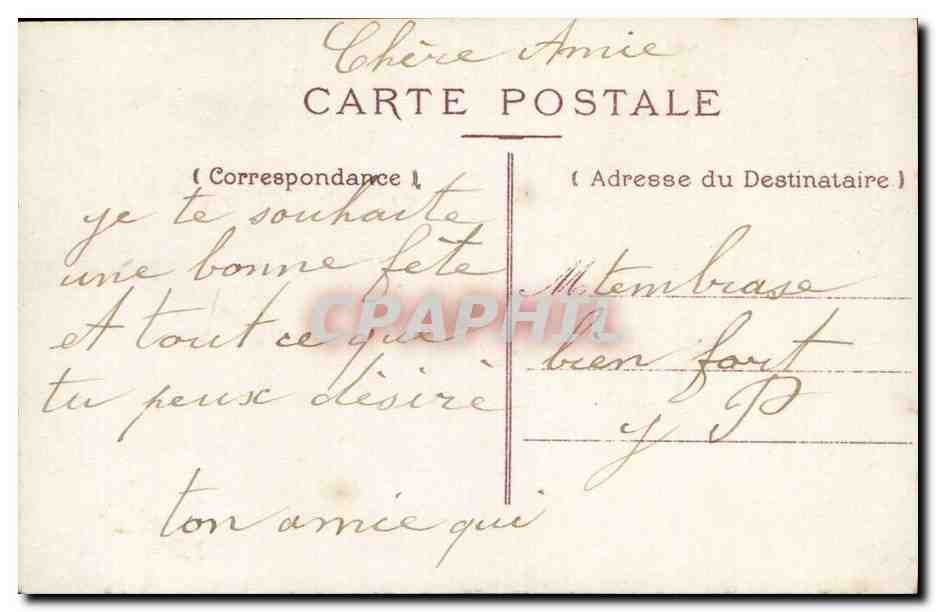 Chère Amie
CARTE POSTALE
( Correspondance )
je te souhaite
une bonne fête
et tout ce que
tu peux désiré
ton amie qui
( Adresse du Destinataire )
M tembrase
bien fort
y P
CPAPHIL